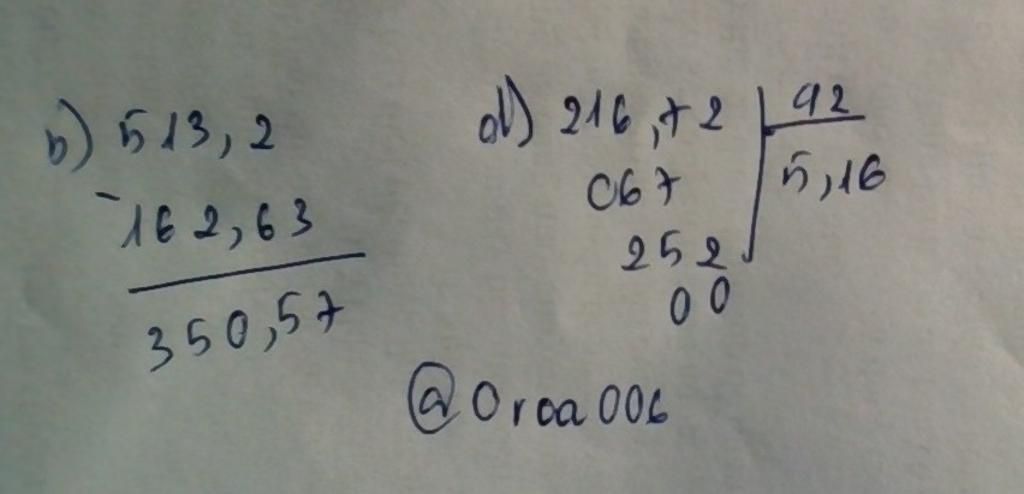 b) 513,2
- 162,63
350,57
d) 216,72 | 42
067 5,16
252
00
@Oroa006